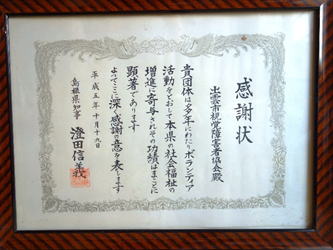 感謝状
出雲市視覚障害者協会殿
貴団体は多年にわたりボランティア
活動をとおして本県の社会福祉の
増進に寄与されその功績はまことに
顕著であります
よってここに深く感謝の意を表します
平成五年十月十八日
島根県知事 澄田信義